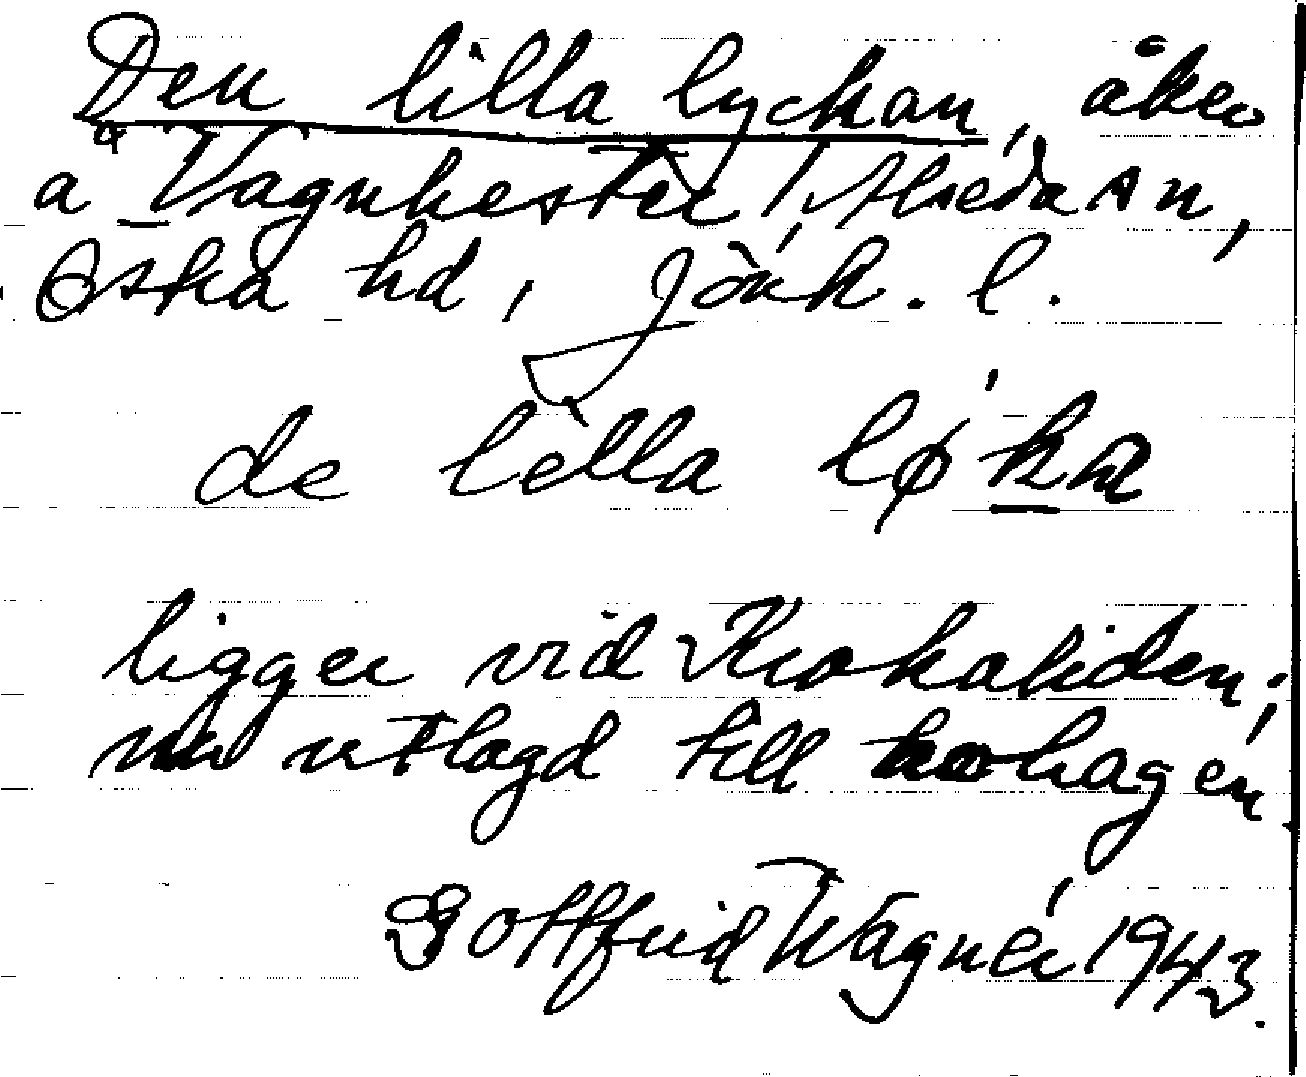 Den lilla lyckan, åker
å Vagnhester, Alseda sn,
Östra hd, Jönk. l.
de lella løka
ligger vid Krokaliden;
nu utlagd till kohagen
Gottfrid Wagnér 1943.